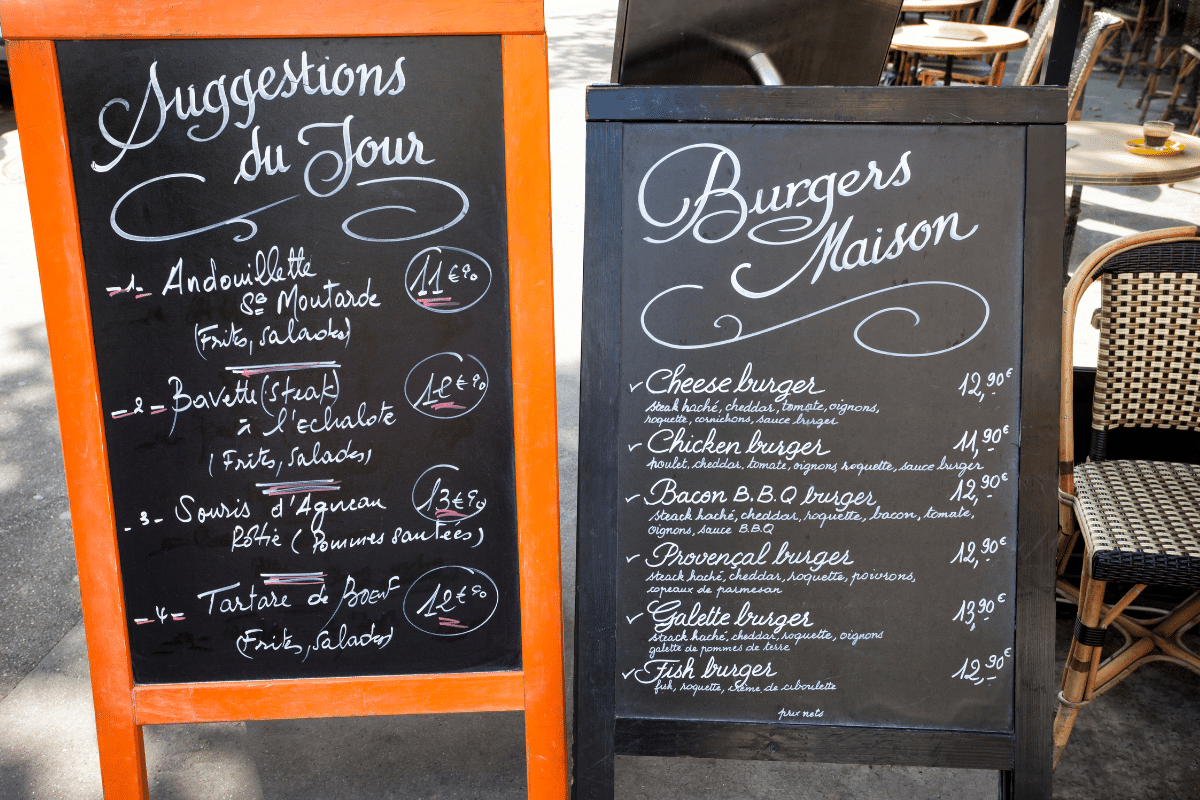 Suggestions
du Jour
-1- Andouillette 11€90
Sce Moutarde
(Frites, Salades)
-2- Bavette (Steak) 12€90
à l'Echalote
(Frites, Salades)
-3- Souris d'Agneau 13€90
Rôtie (Pommes Sautées)
-4- Tartare de Boeuf 12€90
(Frites, Salades)
Burgers
Maison
✓ Cheese burger 12,90€
steak haché, cheddar, tomate, oignons,
roquette, cornichons, sauce burger
✓ Chicken burger 11,90€
poulet, cheddar, tomate, oignons, roquette, sauce burger
✓ Bacon B.B.Q burger 12,90€
steack haché, cheddar, roquette, bacon, tomate,
oignons, sauce B.B.Q
✓ Provençal burger 12,90€
steack haché, cheddar, roquette, poivrons,
copeaux de parmesan
✓ Galette burger 13,90€
steack haché, cheddar, roquette, oignons
galette de pommes de terre
✓ Fish burger 12,90€
fish, roquette, crème de ciboulette
prix nets